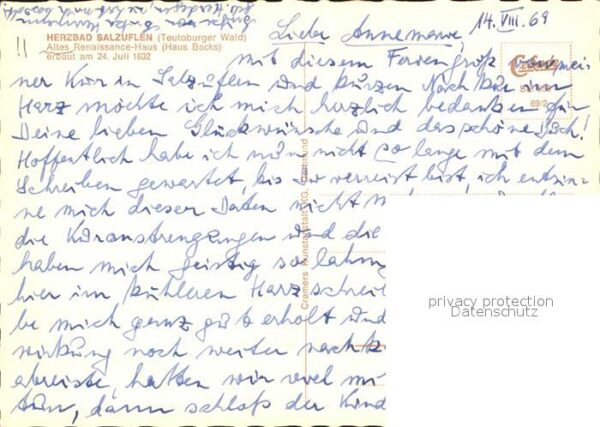 14. VIII. 69
HERZBAD SALZUFLEN (Teutoburger Wald)
Altes Renaissance-Haus (Haus Backs)
erbaut am 24. Juli 1632
Liebe Annemarie,
mit diesem Feriengruß von mei-
ner Kur in Salzuflen und kurzen Nach kur im
Harz möchte ich mich herzlich bedanken für
Deine lieben Glückwünsche und das schöne Buch!
Hoffentlich habe ich nun nicht so lange mit dem
Schreiben gewartet, bis Du verreist bist, ich entsin-
ne mich dieser Daten nicht
die Kuranstrengungen und die
haben mich geistig so lahm
hier im kühleren Harz schrei
be mich ganz gut erholt und
wirkung noch weiter nach
abreiste, hatten wir viel
tun, dann schloß der Kind
Cramers Kunstanstalt KG, Dortmund
privacy protection
Datenschutz